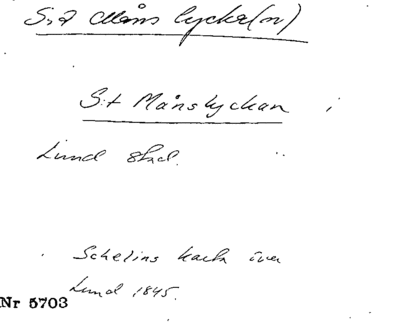 S:t Måns lycka(n)
S:t Månslyckan
Lund stad.
Schelins karta över
Lund 1845.
Nr 5703